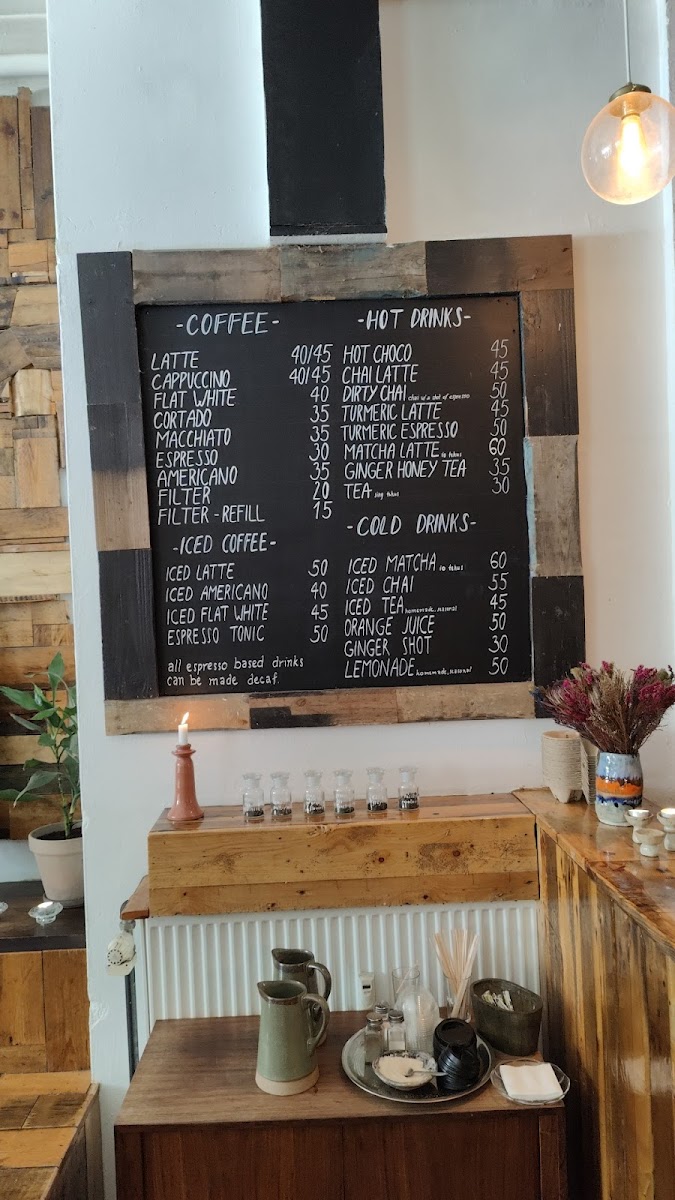 -COFFEE-
LATTE 40/45
CAPPUCCINO 40/45
FLAT WHITE 40
CORTADO 35
MACCHIATO 35
ESPRESSO 30
AMERICANO 35
FILTER 20
FILTER-REFILL 15
-ICED COFFEE-
ICED LATTE 50
ICED AMERICANO 40
ICED FLAT WHITE 45
ESPRESSO TONIC 50
all espresso based drinks
can be made decaf.
-HOT DRINKS-
HOT CHOCO 45
CHAI LATTE 45
DIRTY CHAI chai w/ a shot of espresso 50
TURMERIC LATTE 45
TURMERIC ESPRESSO 50
MATCHA LATTE 60
GINGER HONEY TEA 35
TEA 30
-COLD DRINKS-
ICED MATCHA 60
ICED CHAI 55
ICED TEA homemade, 45
ORANGE JUICE 50
GINGER SHOT 30
LEMONADE homemade, 50